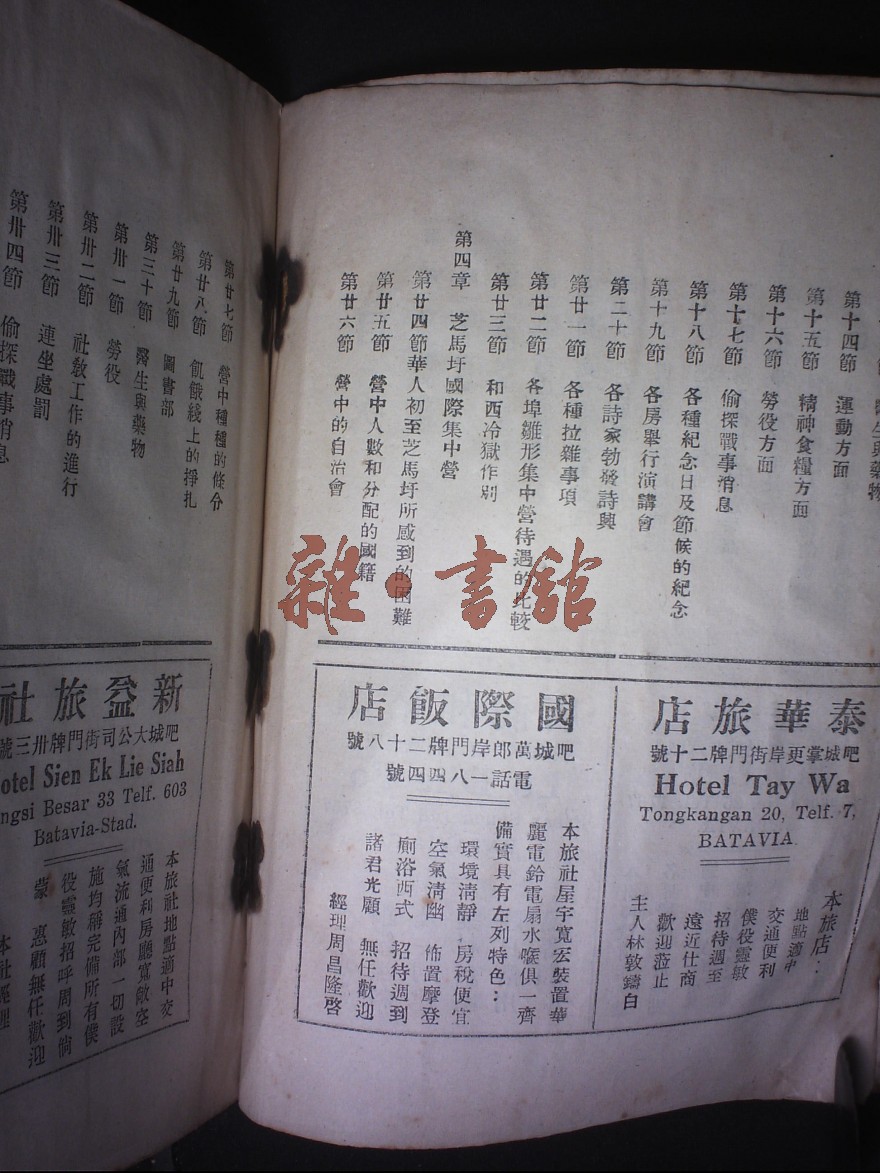 第十四節 運動方面
第十五節 精神食糧方面
第十六節 勞役方面
第十七節 偷探戰事消息
第十八節 各種紀念日及節候的紀念
第十九節 各房舉行演講會
第二十節 各詩家勃發詩興
第廿一節 各種拉雜事項
第廿二節 各埠雛形集中營待遇的比較
第廿三節 和西冷獄作別
第四章 芝馬圩國際集中營
第廿四節 華人初至芝馬圩所感到的困難
第廿五節 營中人數和分配的國籍
第廿六節 營中的自治會
泰華旅店
吧城掌更岸街門牌二十號
Hotel Tay Wa
Tongkangan 20, Telf. 7,
BATAVIA.
本旅店：
地點適中
交通便利
僕役靈敏
招待週至
遠近仕商
歡迎蒞止
主人林敦鑄白
國際飯店
吧城萬郎岸門牌二十八號
電話一八四四號
本旅社屋宇寬宏裝置華
麗電鈴電扇水喉俱一齊
備實具有左列特色：
環境清靜 房稅便宜
空氣清幽 佈置摩登
廁浴西式 招待週到
諸君光顧 無任歡迎
經理周昌隆啓
第廿七節 營中種種的條分
第廿八節 飢餓綫上的掙扎
第廿九節 圖書部
第三十節 醫生與藥物
第卅一節 勞役
第卅二節 社敎工作的進行
第卅三節 連坐處罰
第卅四節 偷探戰事消息
新益旅社
吧城大公司街門牌卅三號
otel Sien Ek Lie Siah
ngsi Besar 33 Telf. 603
Batavia-Stad.
本旅社地點適中交
通便利房廳寬敞空
氣流通內部一切設
施均稱完備所有僕
役靈敏招呼周到倘
蒙 惠顧無任歡迎
本社經理
雜·書館